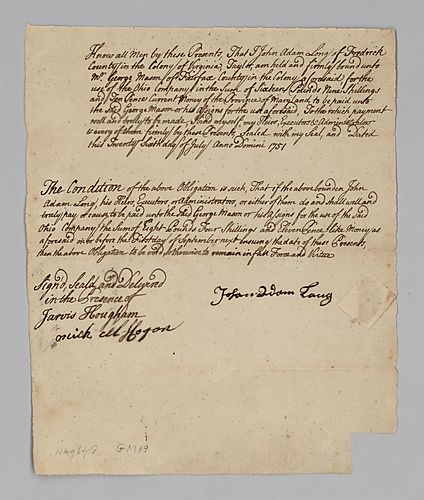 Know all Men by these Presents, That I John Adam Long of Fredrick
County in the Colony of Virginia, Taylor, am held and firmly bound unto
Mr. George Mason of Fairfax County in the Colony aforesaid for the
use of the Ohio Company in the Sum of Sixteen Pounds Nine Shillings
and Ten Pence Current Money of the Province of Maryland, to be paid unto
the said George Mason or his Assigns for the use aforesaid, To the which payment
well and truly to be made, I bind myself, my Heirs, Executors & Administrators
& every of them firmly by these Presents, Sealed with my Seal, and Dated
this Twenty Sixth day of July Anno Domini 1751
The Condition of the above Obligation is such, That if the above bounden John
Adam Long, his Heirs Executors or Administrators, or either of them do and shall well and
truly pay or cause to be paid unto the said George Mason or his Assigns for the use of the said
Ohio Company the Sum of Eight Pounds Four Shillings and Eleven Pence like Money as
aforesaid on or before the First day of September next ensuing the date of these Presents,
then the above Obligation to be void, otherwise to remain in full Force and Virtue
Sign'd, Seal'd and Deliver'd
in the Presence of
John Adam Long
Jarvis Hougham
GM 19